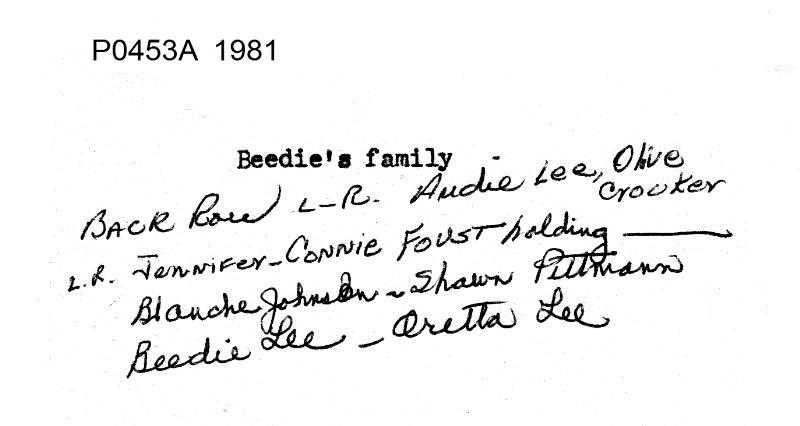 P0453A 1981
Beedie's family -
BACK Row L-R. Audie Lee, Olive
Crocker
L.R. Jennifer-Connie Foust holding ———
Blanche Johnson - Shawn Pittmann
Beedie Lee - Oretta Lee